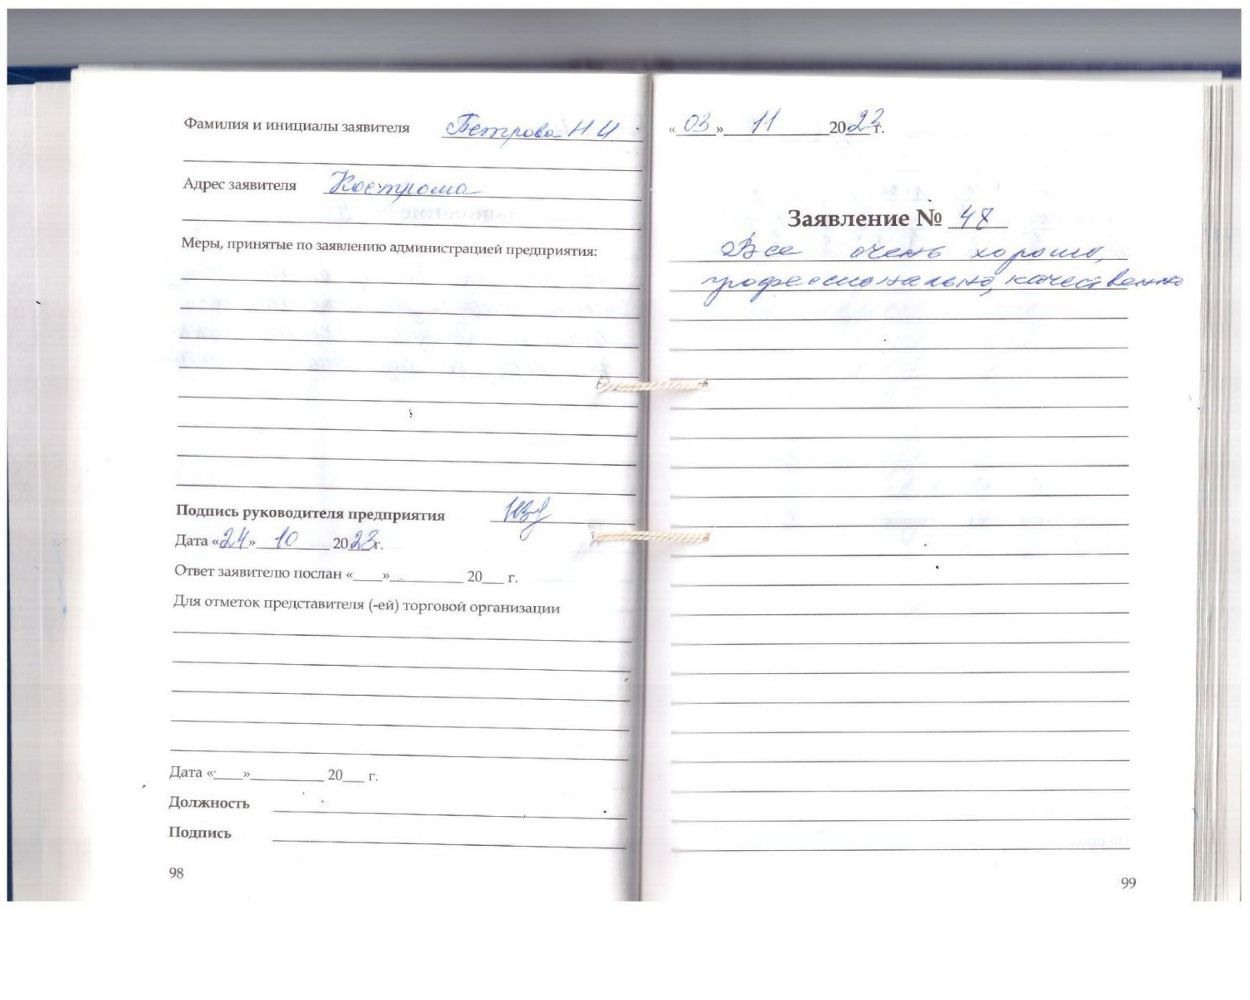 Фамилия и инициалы заявителя Петрова Н И
Адрес заявителя Кострома
Меры, принятые по заявлению администрацией предприятия:
Подпись руководителя предприятия
Дата «24» 10 2023г.
Ответ заявителю послан «___»__________ 20___ г.
Для отметок представителя (-ей) торговой организации
Дата «____»__________ 20___ г.
Должность
Подпись
98
«03» 11 2023г.
Заявление № 48
Все очень хорошо,
профессионально, качественно
99